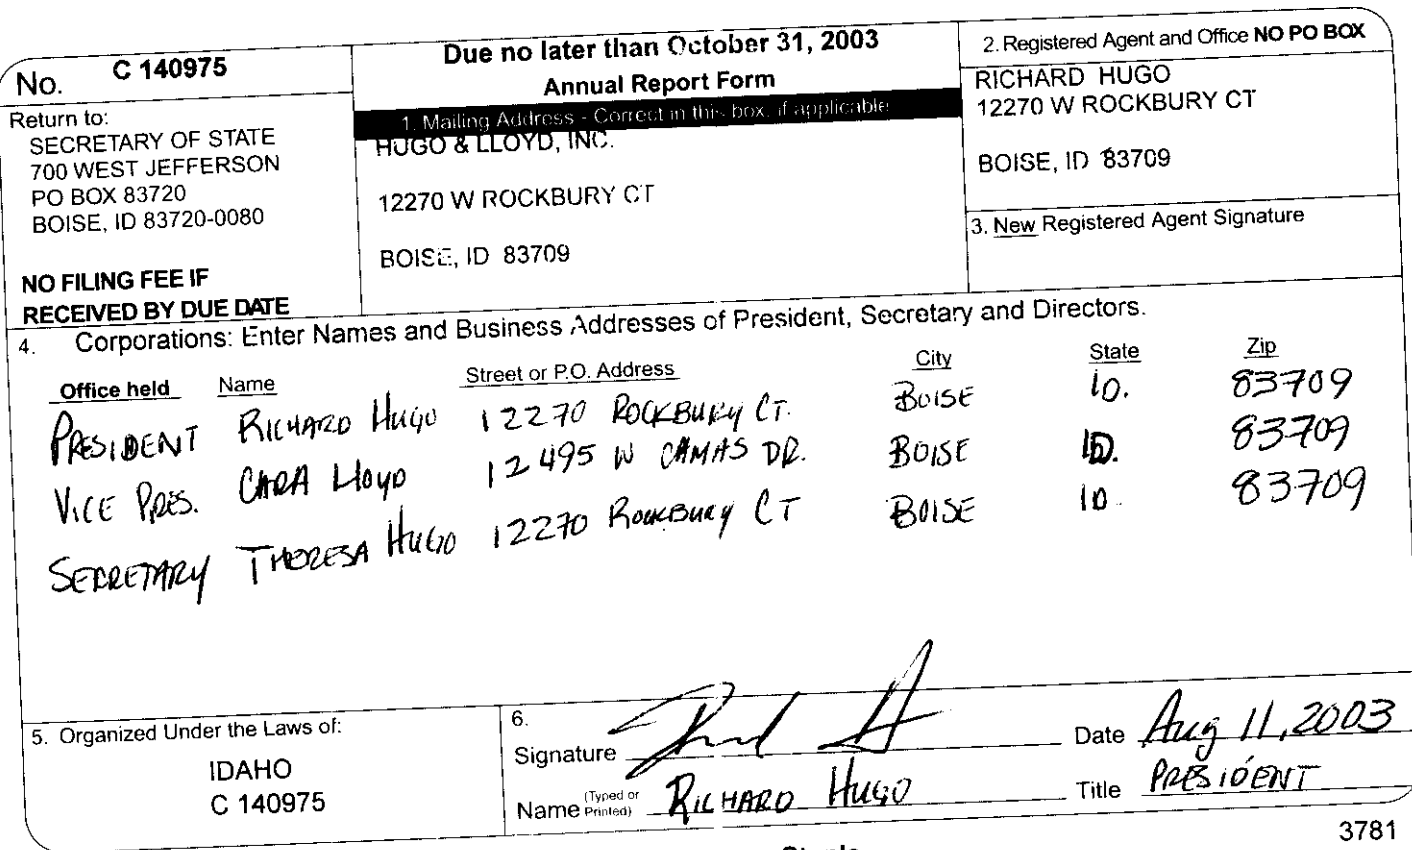 No. C 140975
Return to:
SECRETARY OF STATE
700 WEST JEFFERSON
PO BOX 83720
BOISE, ID 83720-0080
NO FILING FEE IF
RECEIVED BY DUE DATE
Due no later than October 31, 2003
Annual Report Form
1. Mailing Address - Correct in this box, if applicable
HUGO & LLOYD, INC.
12270 W ROCKBURY CT
BOISE, ID 83709
2. Registered Agent and Office NO PO BOX
RICHARD HUGO
12270 W ROCKBURY CT
BOISE, ID 83709
3. New Registered Agent Signature
4. Corporations: Enter Names and Business Addresses of President, Secretary and Directors.
Office held Name Street or P.O. Address City State Zip
PRESIDENT RICHARD HUGO 12270 ROCKBURY CT. BOISE ID. 83709
VICE PRES. CARA LLOYD 12495 W CAMAS DR. BOISE ID. 83709
SECRETARY THERESA HUGO 12270 ROCKBURY CT BOISE ID 83709
5. Organized Under the Laws of:
IDAHO
C 140975
6.
Signature Date Aug 11, 2003
Name (Typed or Printed) RICHARD HUGO Title PRESIDENT
3781